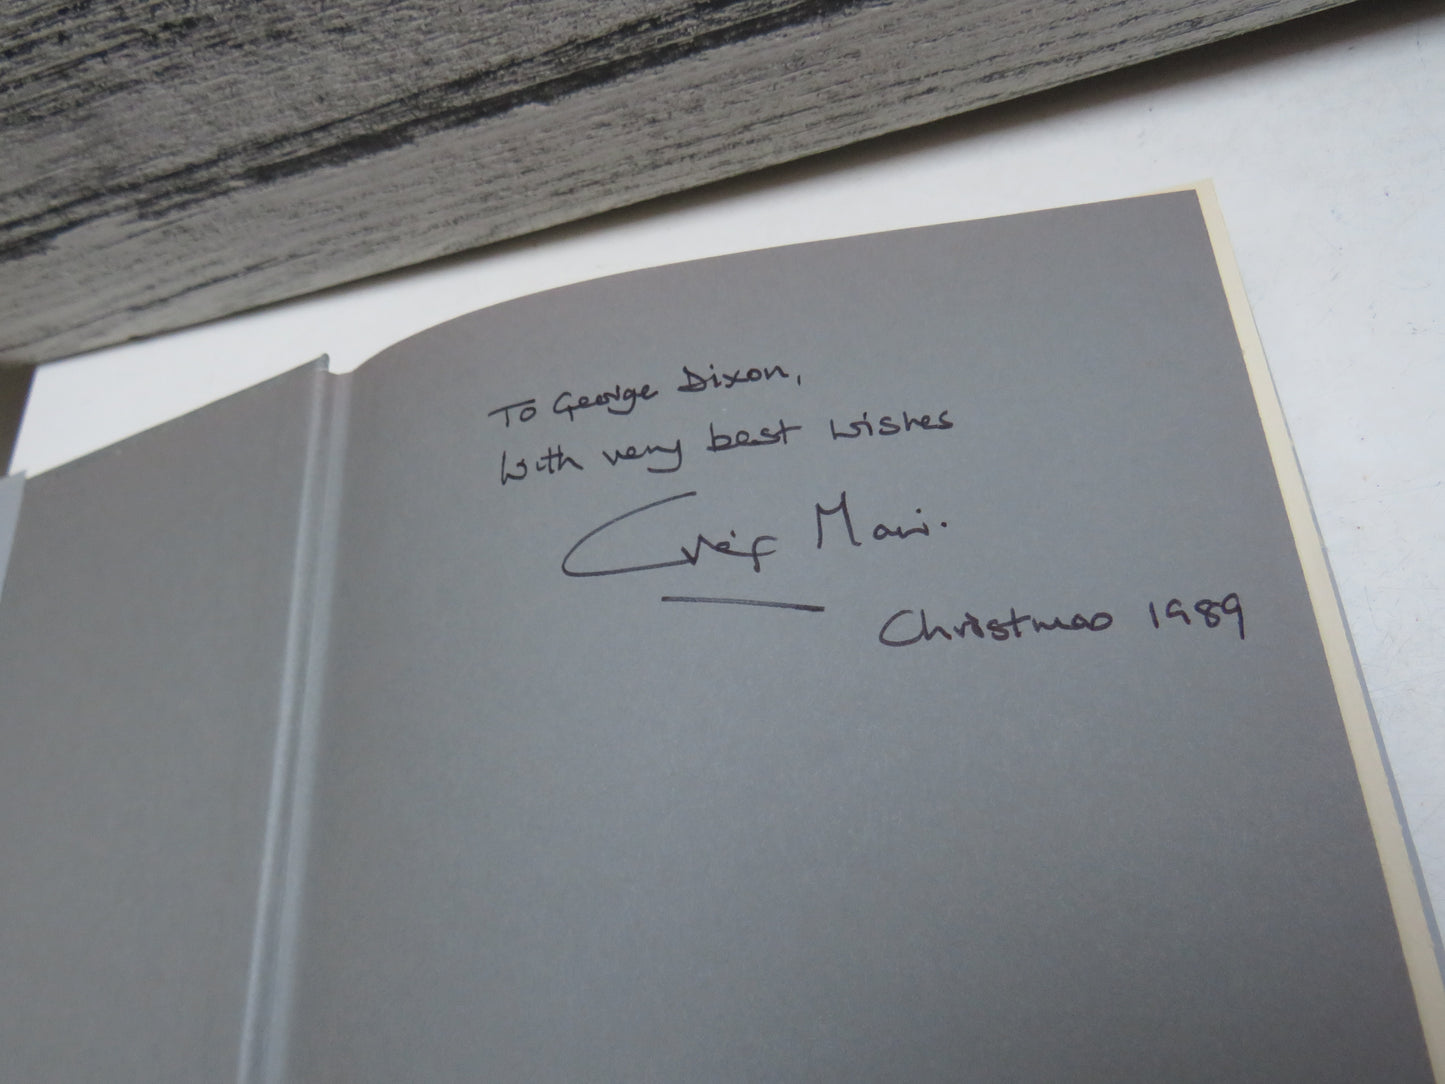 To George Dixon,
With very best wishes
Craig Mair.
Christmas 1989